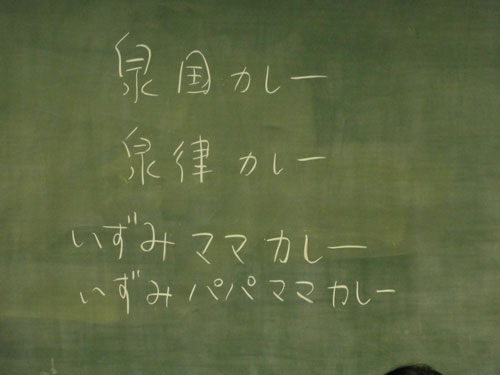 泉国カレー
泉律カレー
いずみママカレー
いずみパパママカレー